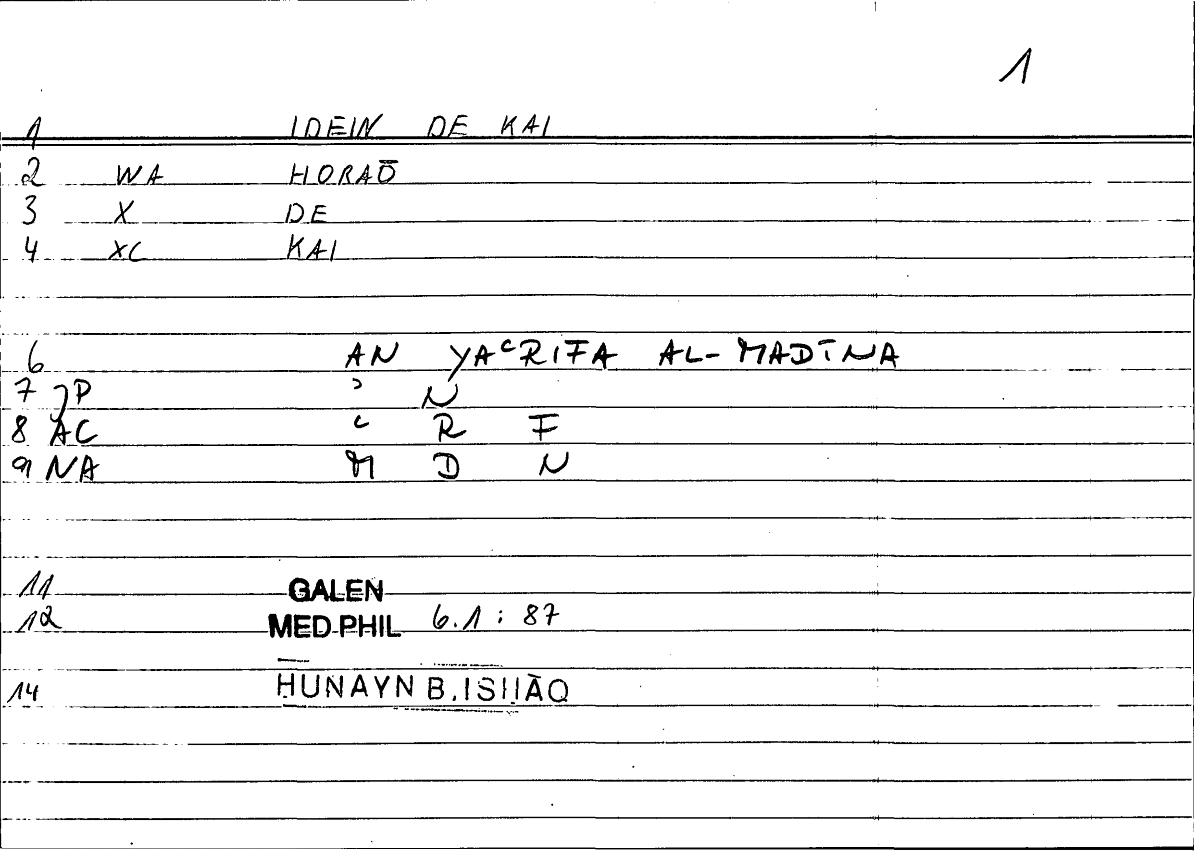 1
1 IDEIN DE KAI
2 WA HORAŌ
3 X DE
4 XC KAI
6 AN YAʿRIFA AL-MADĪNA
7 JP ʾ N
8 AC ʿ R F
9 NA M D N
11 GALEN
12 MED.PHIL 6.1 : 87
14 ḤUNAYN B. ISḤĀQ